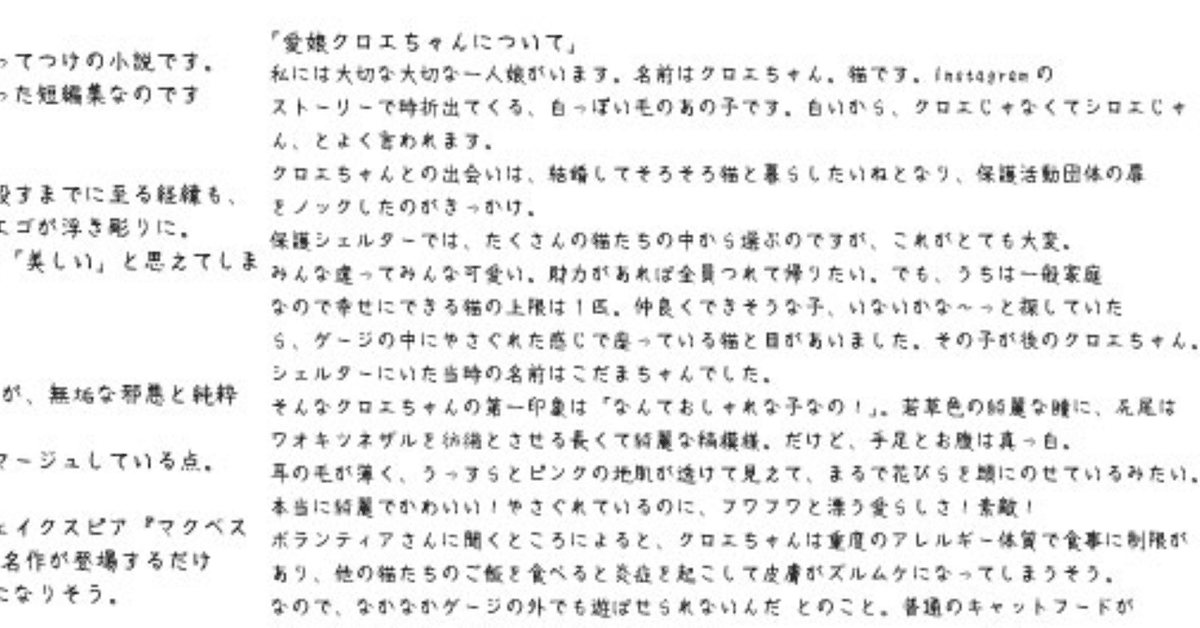 ってつけの小説です。
った短編集なのです
殺すまでに至る経緯も、
エゴが浮き彫りに。
「美しい」と思えてしま
が、無垢な邪悪と純粋
マージュしている点。
ェイクスピア『マクベス
名作が登場するだけ
になりそう。
「愛娘クロエちゃんについて」
私には大切な大切な一人娘がいます。名前はクロエちゃん。猫です。Instagramの
ストーリーで時折出てくる、白っぽい毛のあの子です。白いから、クロエじゃなくてシロエじゃ
ん、とよく言われます。
クロエちゃんとの出会いは、結婚してそろそろ猫と暮らしたいねとなり、保護活動団体の扉
をノックしたのがきっかけ。
保護シェルターでは、たくさんの猫たちの中から選ぶのですが、これがとても大変。
みんな違ってみんな可愛い。財力があれば全員つれて帰りたい。でも、うちは一般家庭
なので幸せにできる猫の上限は1匹。仲良くできそうな子、いないかな〜っと探していた
ら、ゲージの中にやさぐれた感じで座っている猫と目があいました。その子が後のクロエちゃん。
シェルターにいた当時の名前はこだまちゃんでした。
そんなクロエちゃんの第一印象は「なんておしゃれな子なの!」。若草色の綺麗な瞳に、尻尾は
ワオキツネザルを彷彿とさせる長くて綺麗な縞模様。だけど、手足とお腹は真っ白。
耳の毛が薄く、うっすらとピンクの地肌が透けて見えて、まるで花びらを頭にのせているみたい。
本当に綺麗でかわいい!やさぐれているのに、フワフワと漂う愛らしさ!素敵!
ボランティアさんに聞くところによると、クロエちゃんは重度のアレルギー体質で食事に制限が
あり、他の猫たちのご飯を食べると炎症を起こして皮膚がズルムケになってしまうそう。
なので、なかなかゲージの外でも遊ばせられないんだ とのこと。普通のキャットフードが